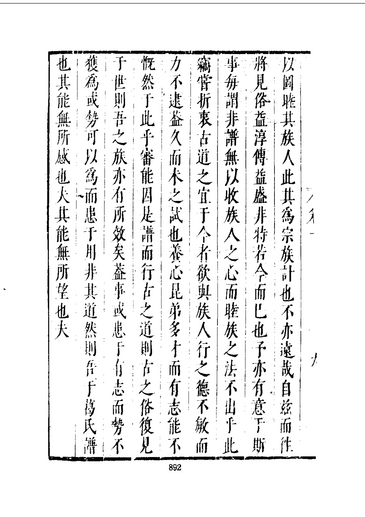 以圖睦其族人此其為宗族計也不亦遠哉自兹而徃
將見俗益淳傳益盛非特若今而巳也予亦有意于斯
事每謂非譜無以收族人之心而睦族之法不出乎此
竊嘗折衷古道之宜于今者欲與族人行之德不敏而
力不逮葢久而未之試也養心昆弟多才而有志能不
慨然于此乎審能因是譜而行古之道則古之俗復見
于世則吾之族亦有所效矣葢事或患于有志而勢不
獲為或勢可以為而患于用非其道然則吾于葛氏譜
也其能無所感也夫其能無所望也夫
892